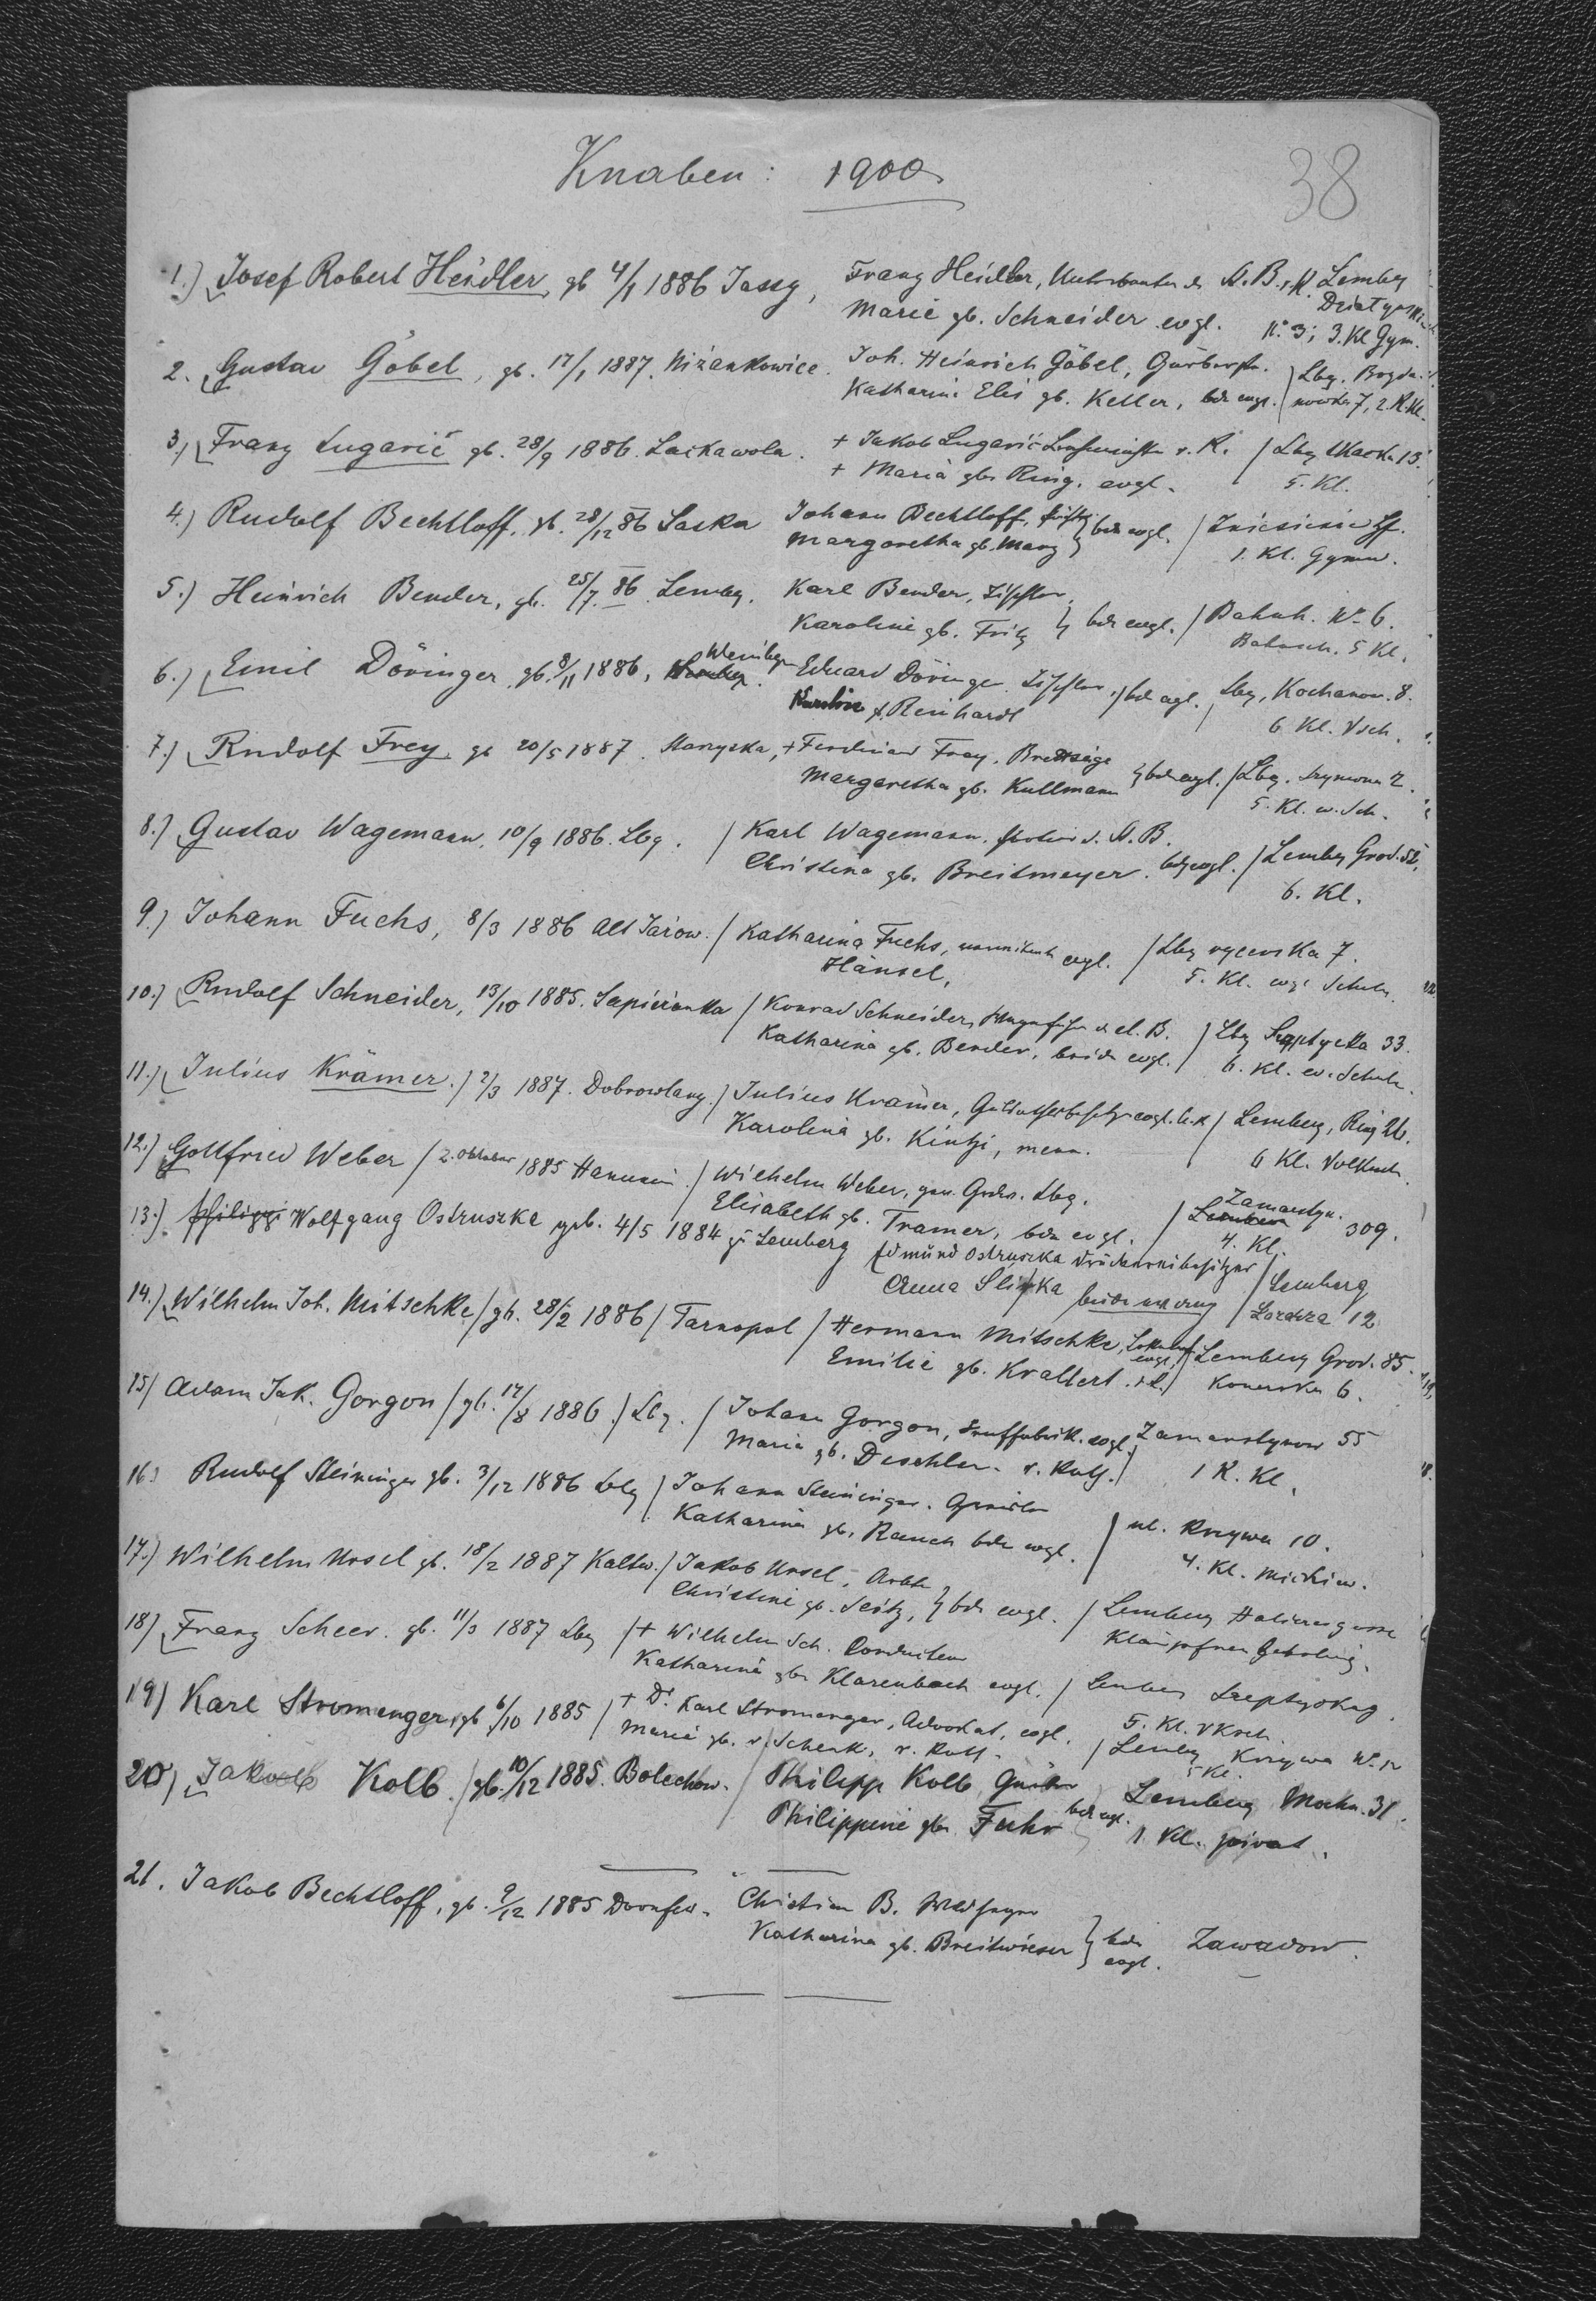 Knaben: 1900
38
1.) Josef Robert Heidler, gb 4/1 1886 Jassy, Franz Heidler, d. St. B. r. K. Lemberg
Marie gb. Schneider evgl. N.° 3; 3. Kl Gym.
2. Gustav Göbel, gb. 17/1 1887. Niżankowice. Joh. Heinrich Göbel, Lbg. Bogda-
Katharina Elis gb. Keller, bde evgl. nowka 7, 2. R. Kl.
3.) Franz Lugarič gb. 28/9 1886. Lackawola. + Jakob Lugarič r. K. / Lbg 13.
+ Maria gb. Ring. evgl. 5. Kl.
4.) Rudolf Bechtloff, gb. 28/12 86 Saska Johann Bechtloff, bde evgl. /
Margaretha gb. Manz 1. Kl. Gymn.
5.) Heinrich Bender, gb. 25/7. 86. Lemberg. Karl Bender, Tischler,
Karoline gb. Fritz } bde evgl. / Bahnh. N° 6.
Bahnsch. 5 Kl.
6.) Emil Döringer gb. 8/11 1886, Eduard Döringer Tischler, bde evgl. Lbg, Kochanow. 8.
gb. Reinhardt 6 Kl. Vsch.
7.) Rudolf Frey gb 20/5 1887. + Ferdinand Frey, Brettsäge
Margaretha gb. Kullmann } bde evgl. / Lbg. Szymona 2.
5. Kl. ev. Sch.
8.) Gustav Wagemann, 10/9 1886. Lbg. / Karl Wagemann, d. St. B.
Christina gb. Breitmeyer. bde evgl. / Lemberg Grod. 52,
6. Kl.
9.) Johann Fuchs, 8/3 1886 Alt Jarow. / Katharina Fuchs, evgl. / Lbg rycerska 7.
Hänsel, 5. Kl. evg. Schule.
10.) Rudolf Schneider, 13/10 1885. Sapieżanka / Konrad Schneider, d. St. B. / Lbg Szeptycka 33.
Katharina gb. Bender, beide evgl. 6. Kl. ev. Schule.
11.) Julius Krämer. / 2/3 1887. Dobrowlany. / Julius Krämer, Gutsbesitzer evgl. h. K. / Lemberg, Ring 26.
Karolina gb. Kintzi, menn. 6 Kl. Volkssch.
12.) Gottfried Weber / 2. Oktober 1885 / Wilhelm Weber, Lbg. Zamarstyn.
Elisabeth gb. Tramer, bde evgl. / 309.
4. Kl.
13.) Wolfgang Ostruszka geb. 4/5 1884 zu Lemberg Edmund Ostruszka Druckereibesitzer / Lemberg
Anna Slinka beide evang / 12
14.) Wilhelm Joh. Mitschke / gb. 28/2 1886 / Tarnopol / Hermann Mitschke, evgl. / Lemberg Grod. 85.
Emilie gb. Krattert 6.
15/ Adam Jak. Gorgon / gb. 17/8 1886. / Lbg. / Johann Gorgon, evgl. Zamarstynow 55
Maria gb. Deschler r. Kath. / 1 R. Kl.
16) Rudolf Steininger gb. 3/12 1886 Lbg / Johann Steininger.
Katharina gb. Rauch bde evgl. / ul. Krzywa 10.
4. Kl. Mickiew.
17.) Wilhelm Ursel gb. 18/2 1887 Kaltw. / Jakob Ursel,
Christine gb. Seitz, } bde evgl. / Lemberg
18) Franz Scheer. gb. 11/3 1887 Lbg / + Wilhelm Sch. Conducteur
Katharina gb. Klarenbach evgl. / Lemberg
5. Kl. VKsch.
19) Karl Stromenger, gb 6/10 1885 / + Dr Karl Stromenger, Advokat, evgl.
Maria gb. v. Schenk, r. Kath. / Lemberg Krzywa N. 12
5 Kl.
20) Jakob Kolb. / gb. 10/12 1885. Bolechow. / Philipp Kolb, Lemberg 31.
Philippine gb. Fuhr bde evgl. 1 Kl. privat.
21. Jakob Bechtloff, gb. 9/12 1885 Dornfeld. Christian B.
Katharina gb. Breitwieser } bde evgl. Zawadow.